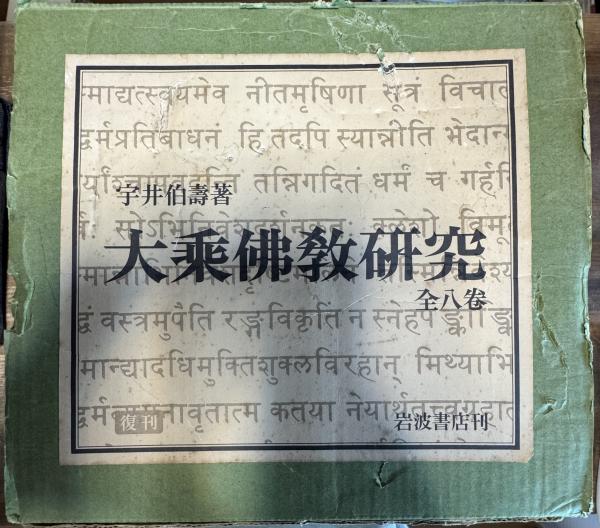 माद्यत्स्वयमेव नीतमृषिणा सूत्रं विचाल
द्धर्मप्रतिबाधनं हि तदपि स्यान्नीति भेदान्
宇井伯壽著
तन्निगदितं धर्मं च गर्ह
大乘佛教研究
全八巻
द्वं वस्त्रमुपैति रङ्गविकृतिं न स्नेहप
मान्द्यादधिमुक्तिशुक्लविरहान् मिथ्याभि
नावृतात्म कतया नेयार्थ
復刊
岩波書店刊